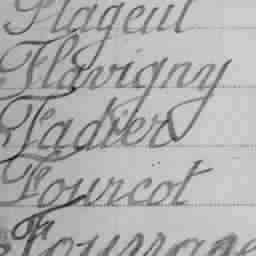 Flageul
Flavigny
Fadier
Fourcot
Fourrage